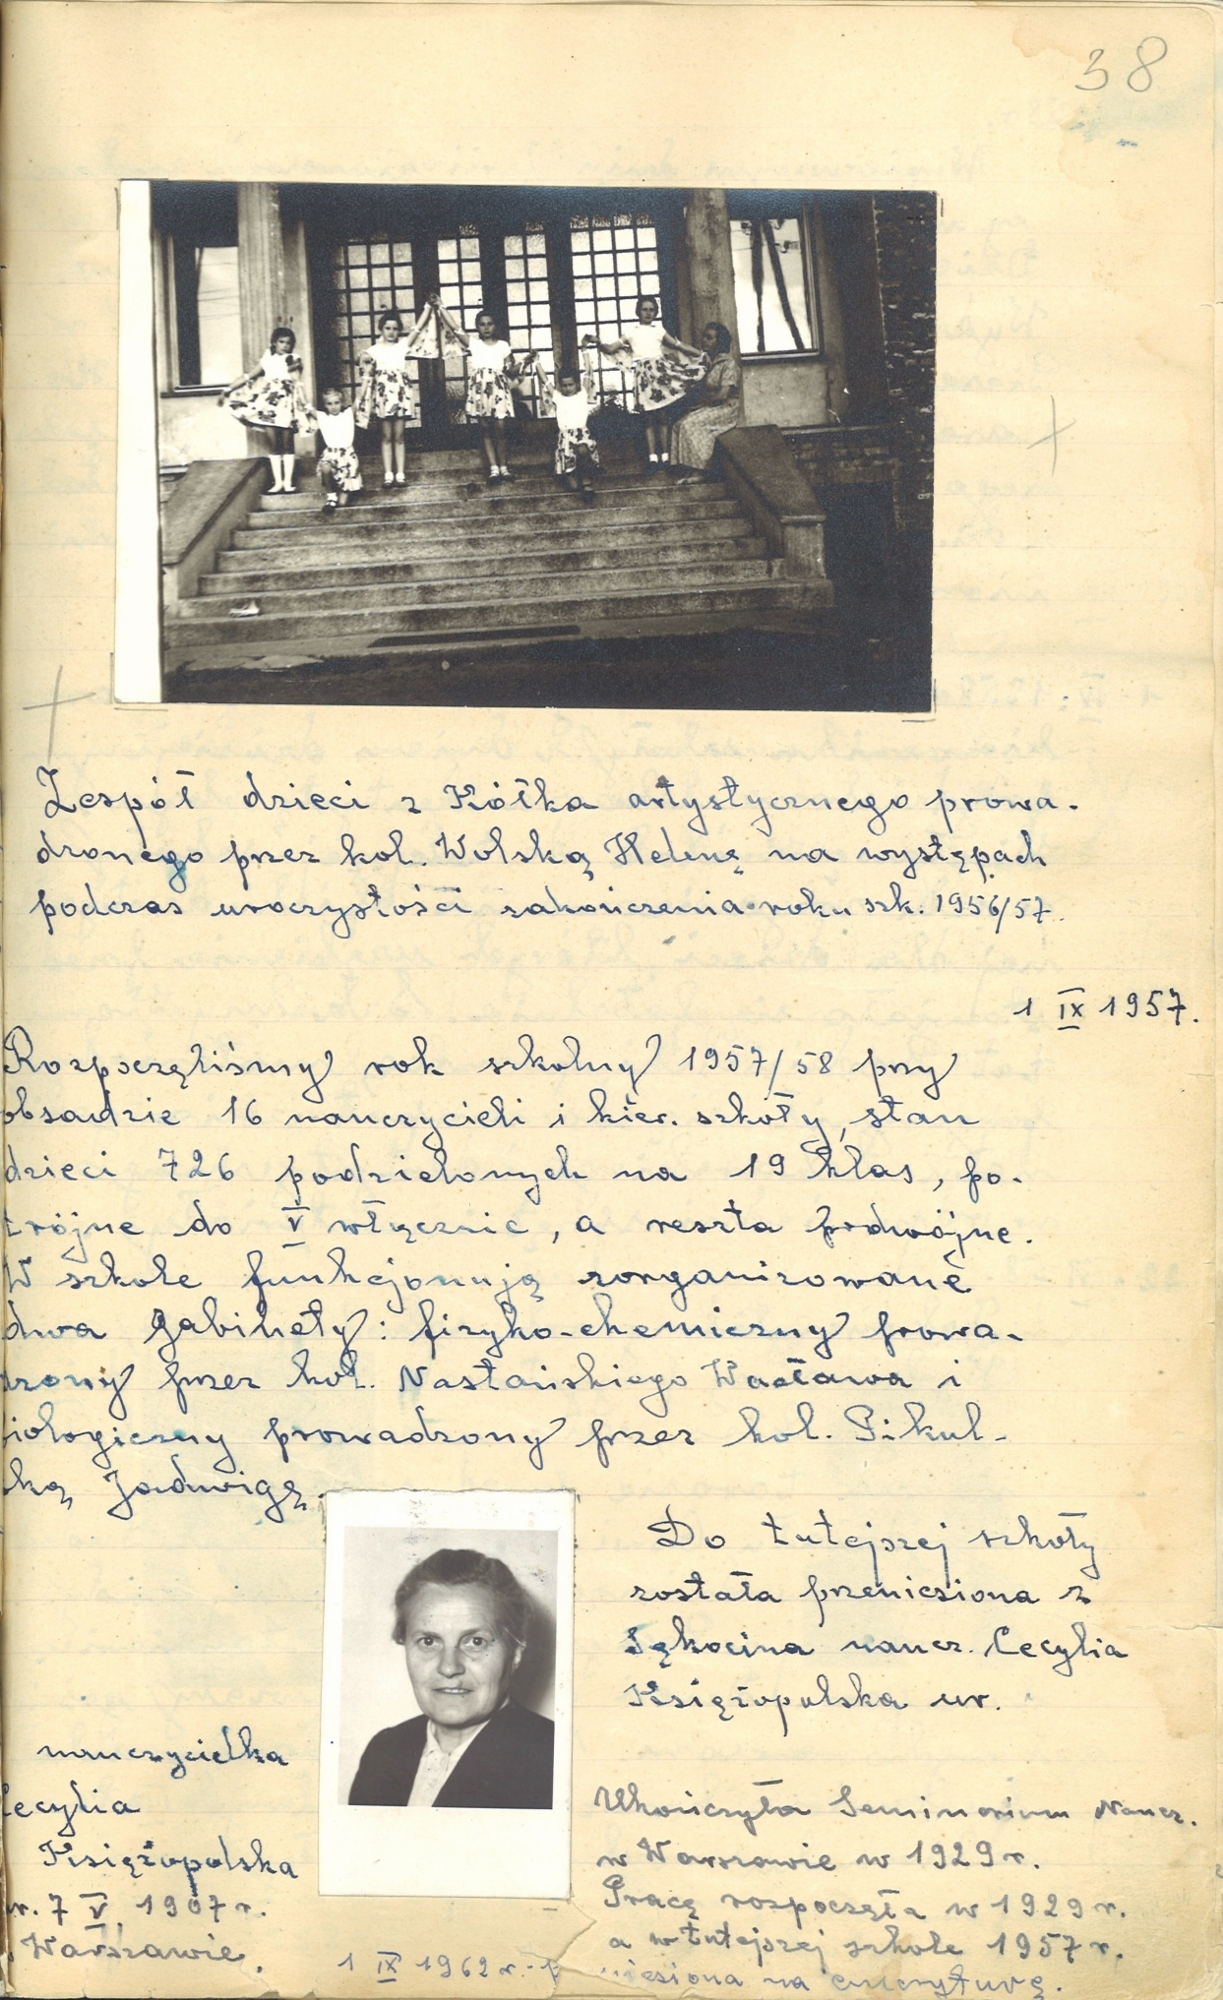 38
Zespół dzieci z Kółka artystycznego prowa-
dzonego przez kol. Wolską Helenę na występach
podczas uroczystości zakończenia roku szk. 1956/57.
1 IX 1957.
Rozpoczęliśmy rok szkolny 1957/58 przy
obsadzie 16 nauczycieli i kier. szkoły, stan
dzieci 726 podzielonych na 19 klas, po-
trójne do V włącznie, a reszta podwójne.
W szkole funkcjonują zorganizowane
dwa gabinety: fizyko-chemiczny prowa-
dzony przez kol. Nastańskiego Wacława i
biologiczny prowadzony przez kol. Pikul-
ską Jadwigę.
Do tutejszej szkoły
została przeniesiona z
Sękocina naucz. Cecylia
Księżopolska ur.
nauczycielka
Cecylia
Księżopolska
ur. 7 V 1907 r.
Warszawie.
Ukończyła Seminarium Naucz.
w Warszawie w 1929 r.
Pracę rozpoczęła w 1929 r.
a w tutejszej szkole 1957 r.
1 IX 1962 r. - na emeryturę.